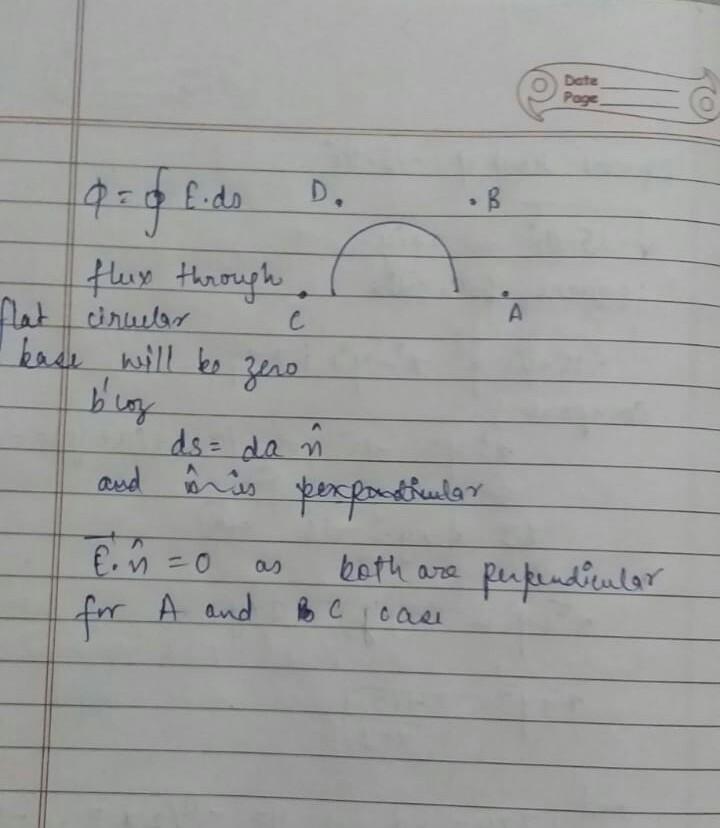 Date
Page
φ = ∮ E.ds D. .B
flux through
flat circular C A
base will be zero
b'coz
ds = da n̂
and n̂ is perpendicular
E⃗.n̂ = 0 as both are perpendicular
for A and C case